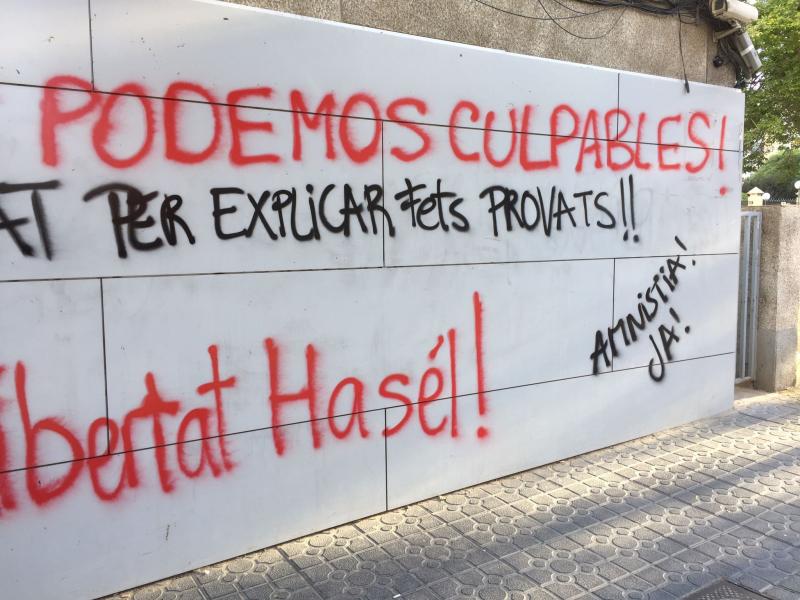 PODEMOS CULPABLES!
AT PER EXPLICAR Fets PROVATS!!
AMNISTIA!
JA!
libertat Hasél!